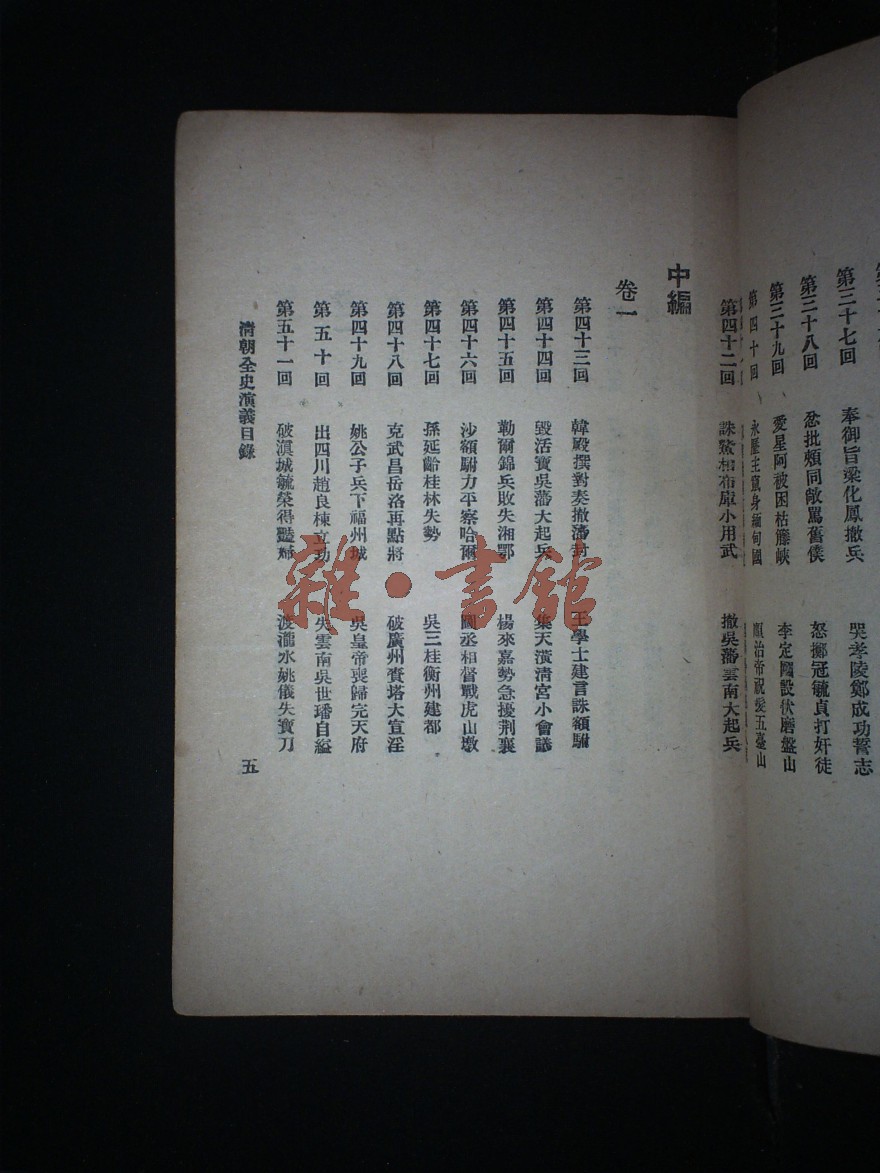 第三十七回 奉御旨梁化鳳撤兵 哭孝陵鄭成功誓志
第三十八回 忿批頰同敵罵舊僕 怒擲冠毓貞打奸徒
第三十九回 愛星阿被困枯籐峽 李定國設伏磨盤山
第四十回 永曆主竄身緬甸國 順治帝祝髮五臺山
第四十二回 誅鰲相布庫小用武 撤吳藩雲南大起兵
中編
卷一
第四十三回 韓殿撰對奏撤藩封 王學士建言誅額駙
第四十四回 毀活寶吳藩大起兵 集天潢清宮小會議
第四十五回 勒爾錦兵敗失湘鄂 楊來嘉勢急擾荆襄
第四十六回 沙額駙力平察哈爾 圖丞相督戰虎山墩
第四十七回 孫延齡桂林失勢 吳三桂衡州建都
第四十八回 克武昌岳洛再點將 破廣州賚塔大宣淫
第四十九回 姚公子兵下福州城 吳皇帝喪歸完天府
第五十回 出四川趙良棟立功 失雲南吳世璠自縊
第五十一回 破滇城毓榮得豔 渡瀧水姚儀失寶刀
清朝全史演義目錄
五
雜·書館